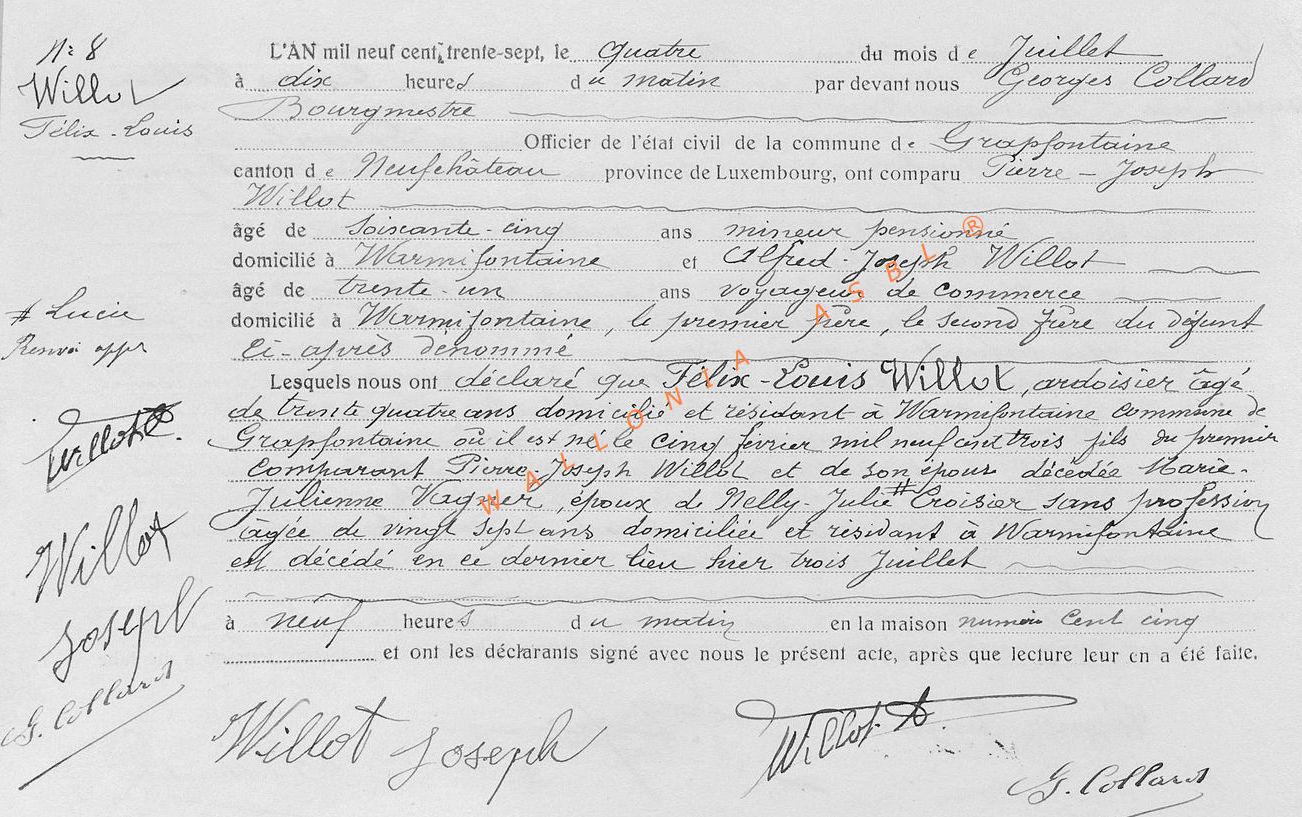 N° 8
Willot
Félix-Louis
L'AN mil neuf cent trente-sept, le quatre du mois de Juillet
à dix heures du matin par devant nous Georges Collard
Bourgmestre
Officier de l'état civil de la commune de Grapfontaine
canton de Neufchâteau province de Luxembourg, ont comparu Pierre-Joseph
Willot
âgé de soixante-cinq ans mineur pensionné
domicilié à Warmifontaine et Alfred-Joseph Willot
âgé de trente-un ans voyageur de commerce
domicilié à Warmifontaine, le premier père, le second frère du défunt
ci-après dénommé
Lesquels nous ont déclaré que Félix-Louis Willot, ardoisier âgé
de trente quatre ans domicilié et résidant à Warmifontaine commune de
Grapfontaine où il est né le cinq février mil neuf cent trois fils du premier
comparant Pierre-Joseph Willot et de son épouse décédée Marie-
Julienne Wagner, époux de Nelly-Julie # Croisier sans profession
âgée de vingt sept ans domiciliée et résidant à Warmifontaine
est décédé en ce dernier lieu hier trois Juillet
à neuf heures du matin en la maison numéro cent cinq
et ont les déclarants signé avec nous le présent acte, après que lecture leur en a été faite.
# Lucie
Renvoi appr
Willot A.
Willot
Joseph
G. Collard
Willot Joseph
Willot. A.
G. Collard
WALLONIA ASBL ®